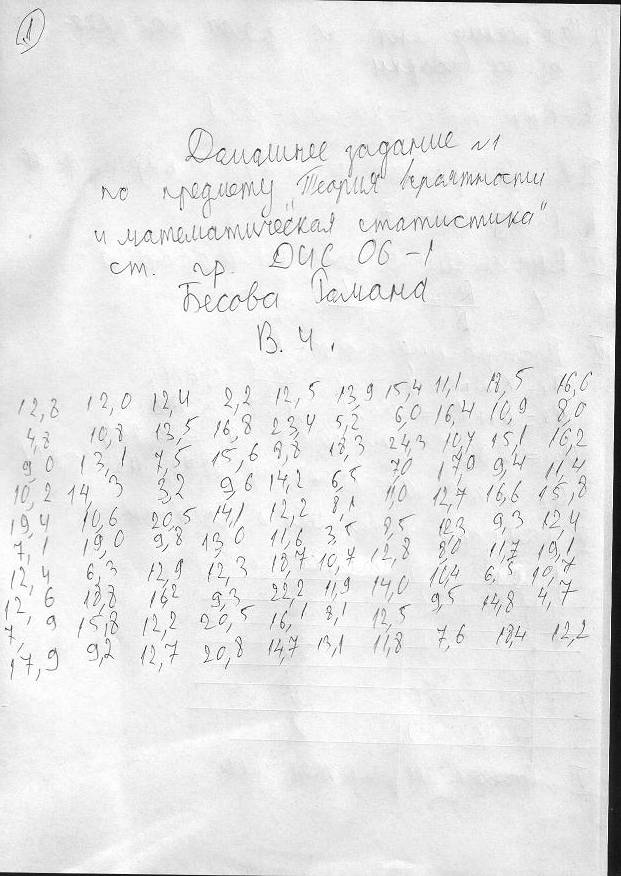 1
Домашнее задание №1
по предмету "Теория вероятности
и математическая статистика"
ст. гр. ДИС 06-1
Бесова Романа
В. 4.
12,8 12,0 12,4 2,2 12,5 13,9 15,4 11,1 18,5 16,6
4,8 10,8 13,5 16,8 23,4 5,2 6,0 16,4 10,9 8,0
9,0 13,1 7,5 15,6 8,8 18,3 24,3 10,4 15,1 16,2
10,2 14,3 3,2 9,6 14,2 6,5 7,0 17,9 9,4 11,4
19,4 10,6 20,5 14,1 12,2 8,1 1,0 12,7 16,6 15,8
7,1 19,0 9,8 13,0 11,6 3,5 8,5 12,3 9,3 12,4
12,4 6,3 12,9 12,3 18,7 10,7 12,8 8,0 11,7 19,1
12,6 18,8 16,2 9,3 22,2 11,9 14,0 10,4 6,5 10,7
7,9 15,8 12,2 20,5 16,1 8,1 12,5 9,5 14,8 4,7
17,9 9,2 12,7 20,8 14,7 13,1 11,8 7,6 18,4 12,2